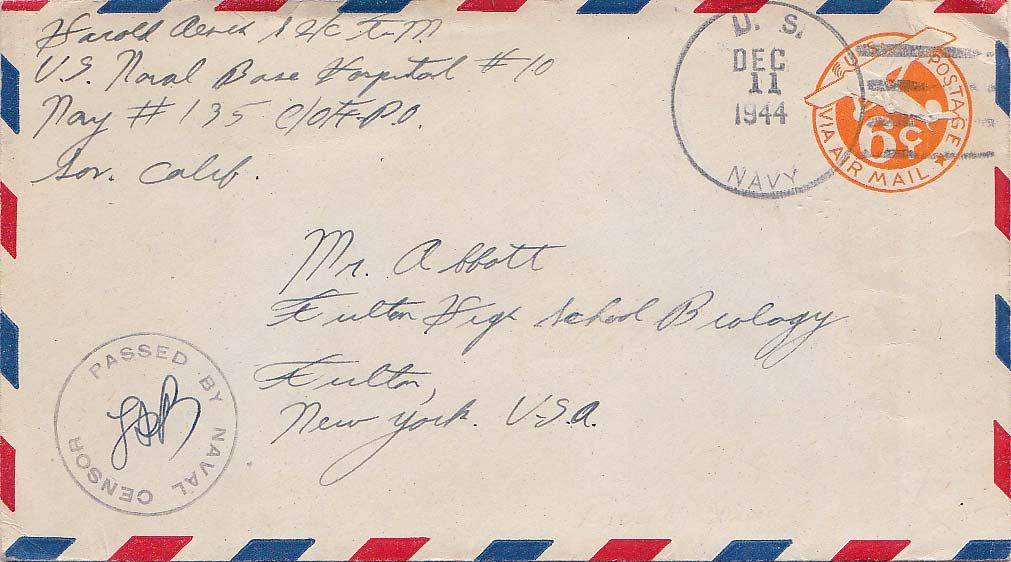 Harold S 2/c
U.S. Naval Base Hospital # 10
Navy # 135 C/O F.P.O.
Calif.
U. S.
DEC
11
1944
NAVY
U.S. POSTAGE
6¢
VIA AIR MAIL
Mr. Abbott
Fulton High School Biology
Fulton,
New York. U.S.A.
PASSED BY NAVAL CENSOR